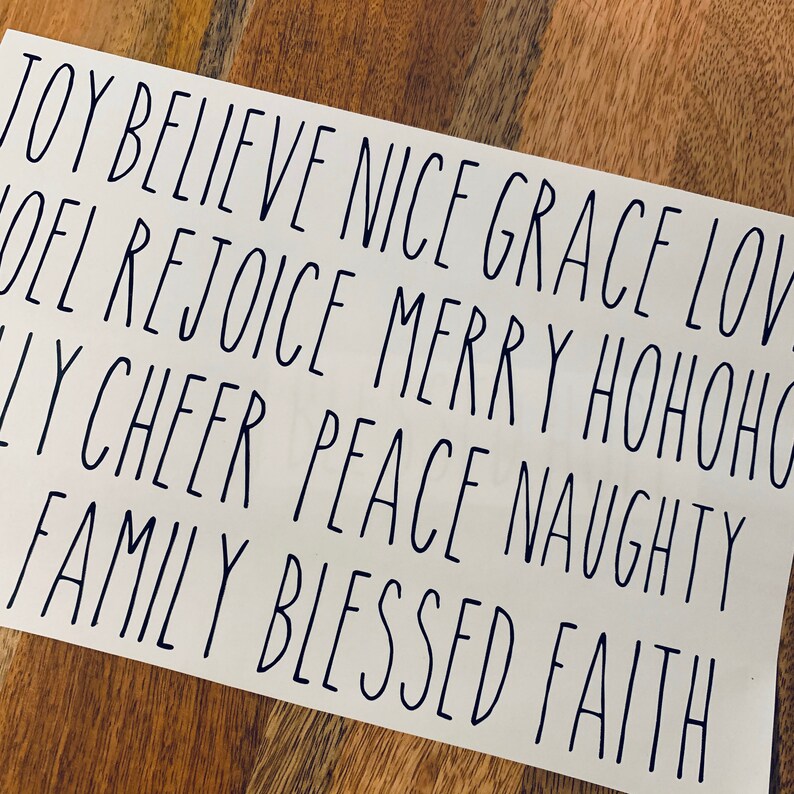 JOY BELIEVE NICE GRACE LOV
OEL REJOICE MERRY HOHOHO
LLY CHEER PEACE NAUGHTY
FAMILY BLESSED FAITH